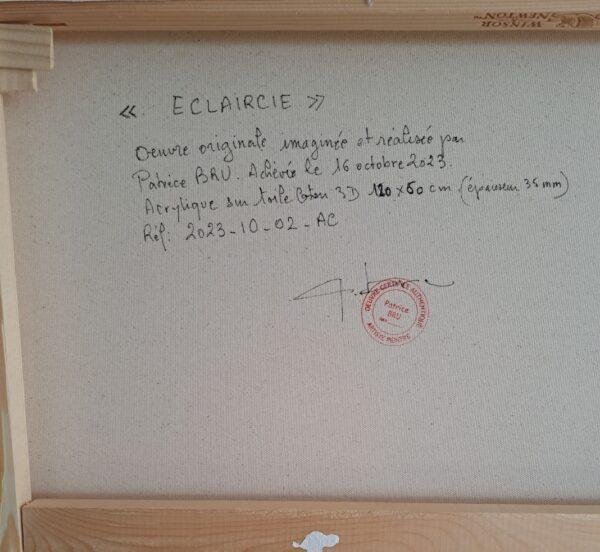 WINSOR
& NEWTON™
« ECLAIRCIE »
Oeuvre originale imaginée et réalisée par
Patrice BRU. Achevée le 16 octobre 2023.
Acrylique sur toile Coton 3D 120 x 60 cm (épaisseur 35 mm)
Réf: 2023-10-02-AC
OEUVRE CERTIFIÉE AUTHENTIQUE
Patrice
BRU
ARTISTE PEINTRE